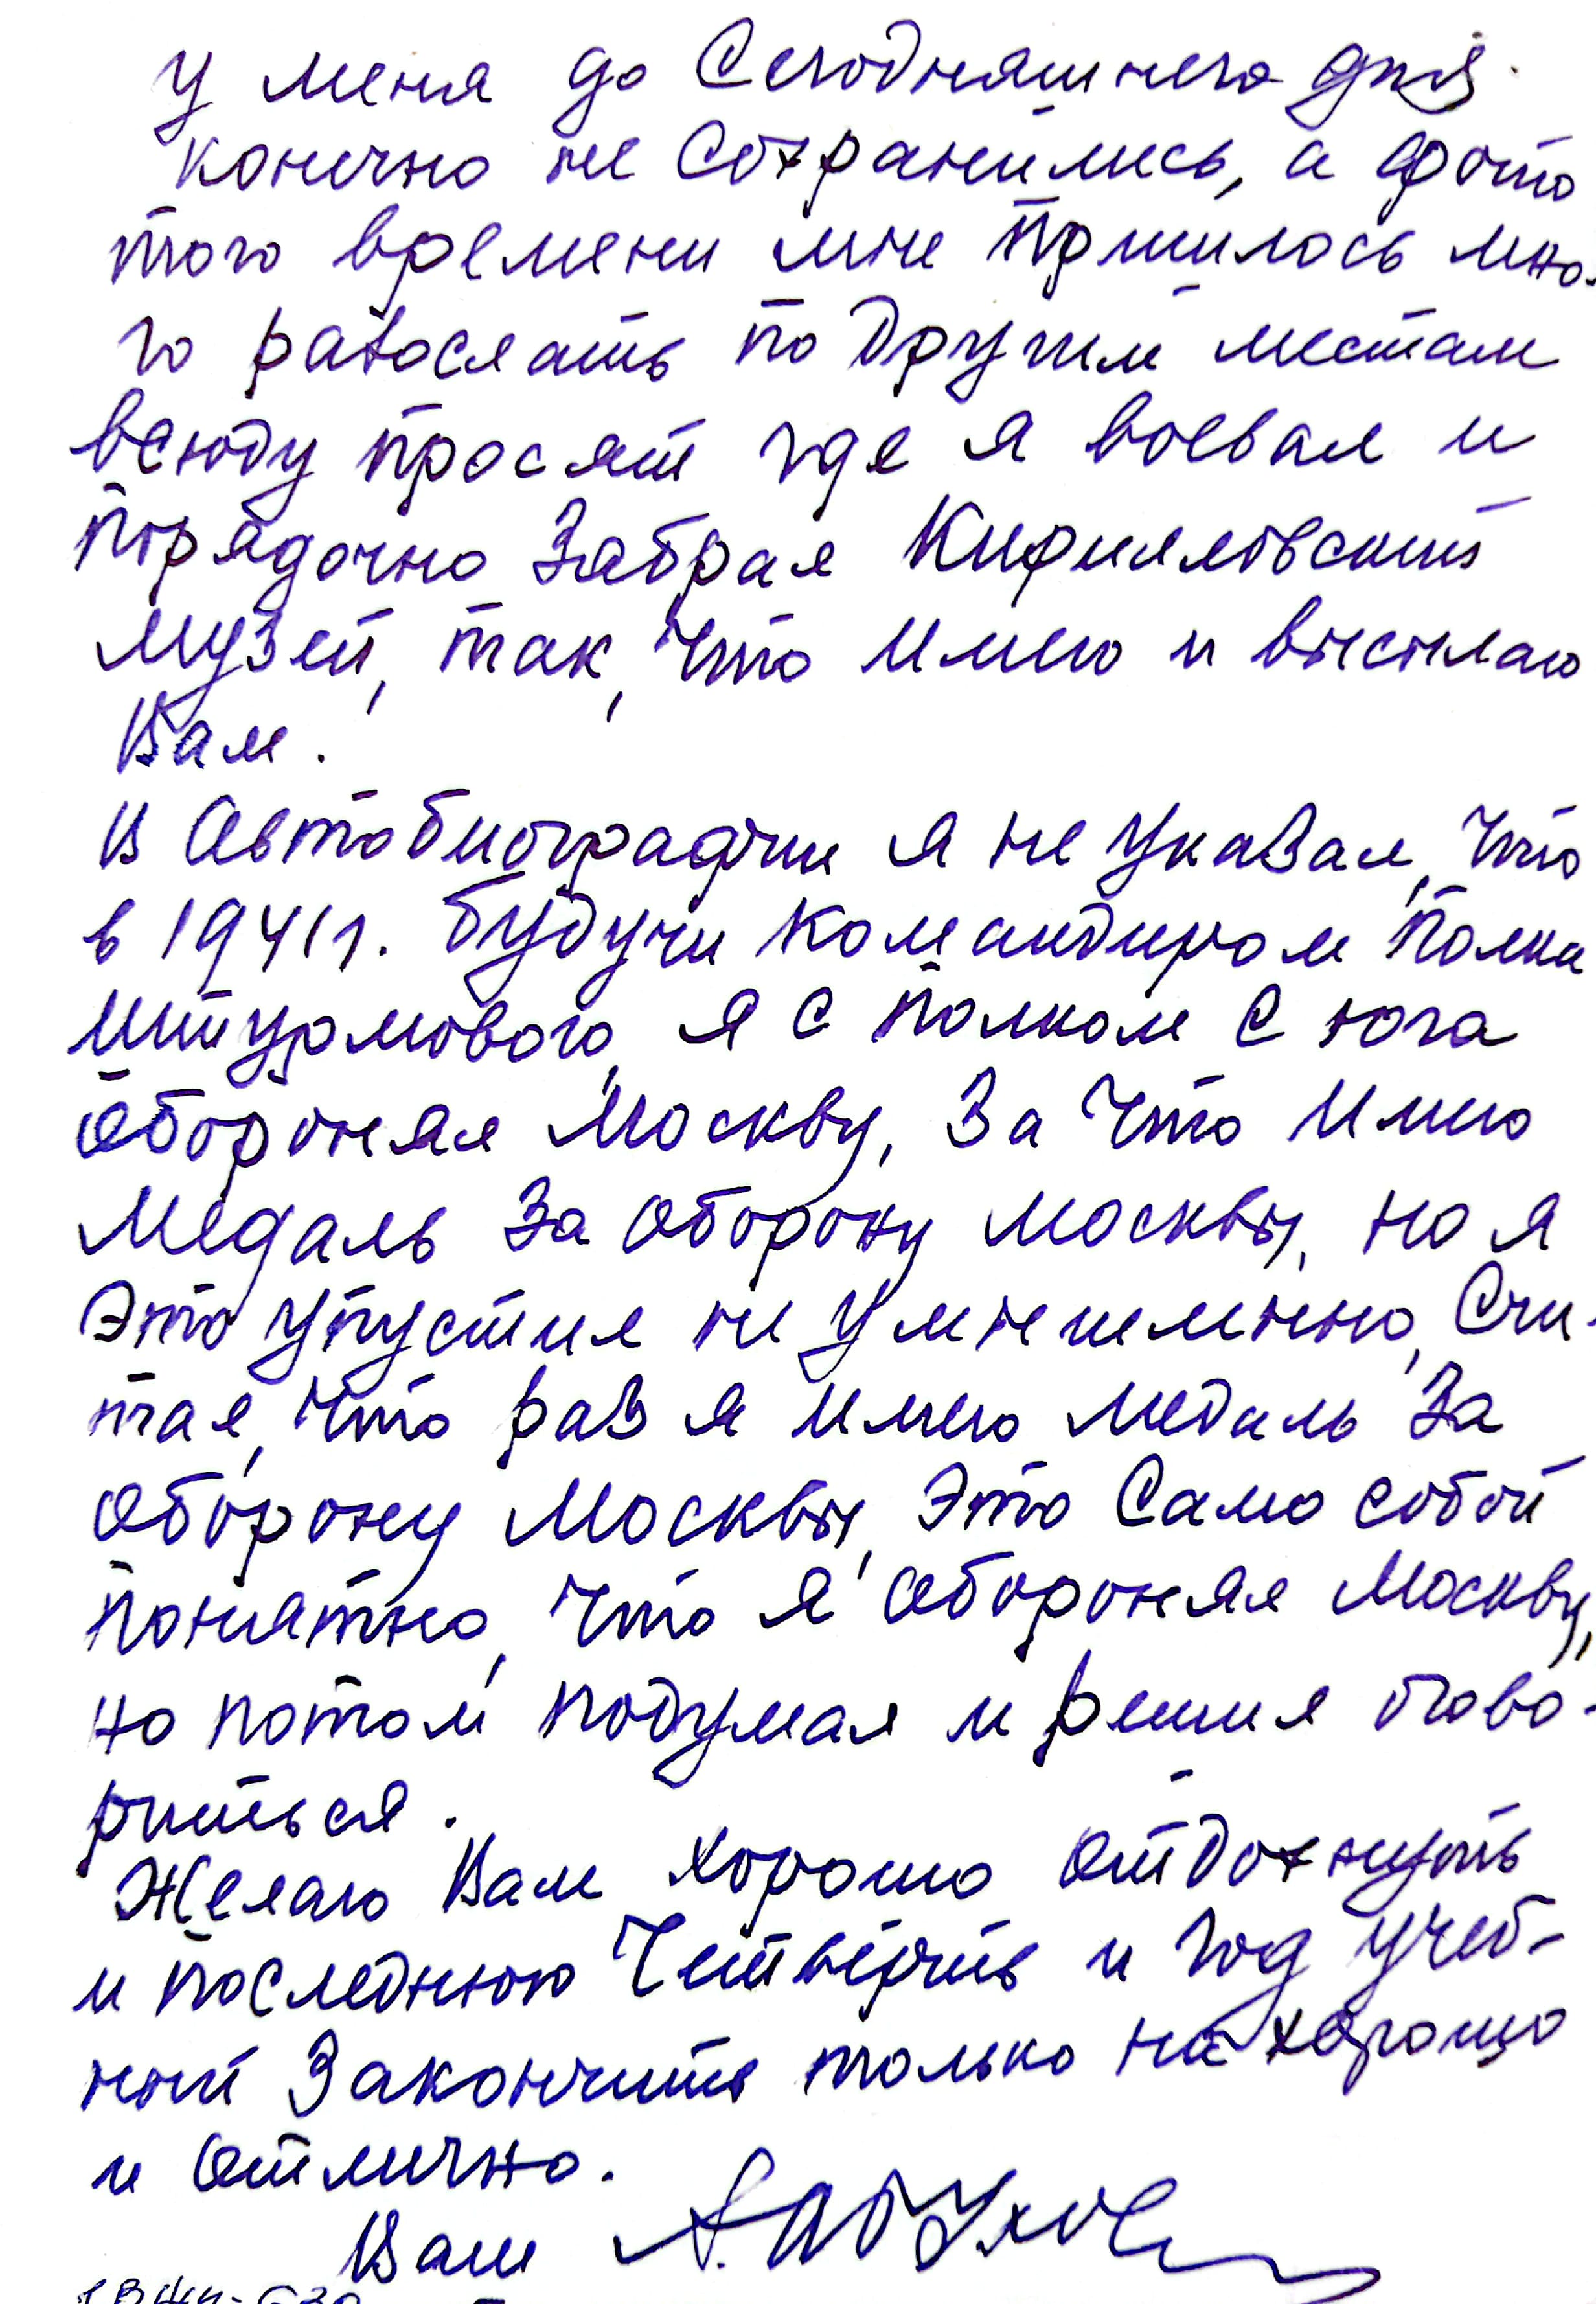 у меня до Сегодняшнего дня.
конечно не Сохранились, а фото
того времени мне пришлось мно-
го разослать по другим местам
всюду просят где я воевал и
порядочно забрал Кирилловский
музей, так, что имею и высылаю
Вам.
В Автобиографии я не указал, что
в 1941г. будучи командиром полка
штурмового, я с полком с юга
оборонял Москву, За что имею
медаль За оборону Москвы, но я
это упустил не умышленно, Счи-
тая, что раз я имею медаль За
оборону Москвы, это Само собой
понятно, что я оборонял Москву,
но потом подумал и решил огово-
риться.
Желаю Вам хорошо отдохнуть
и последнюю четверть и год учеб-
ный Закончить только на хорошо
и отлично.
Ваш